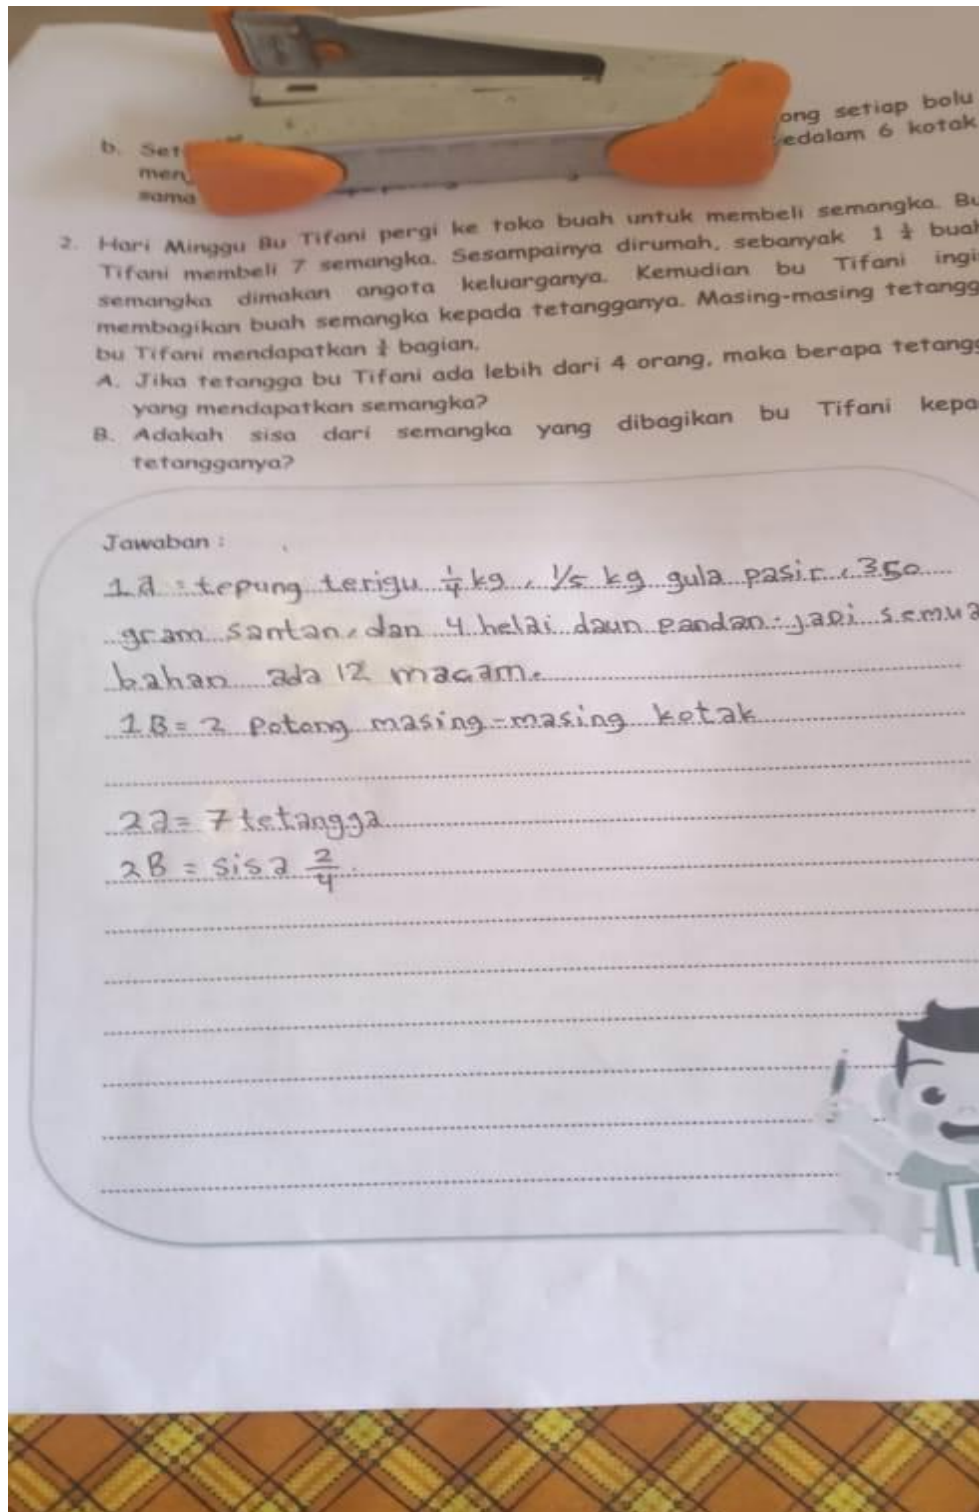 ong setiap bolu
b. Set
edalam 6 kotak
men
sama
2. Hari Minggu Bu Tifani pergi ke toko buah untuk membeli semangka. Bu
Tifani membeli 7 semangka. Sesampainya dirumah, sebanyak 1 buah
semangka dimakan angota keluarganya. Kemudian bu Tifani ingi
membagikan buah semangka kepada tetangganya. Masing-masing tetangg
bu Tifani mendapatkan bagian.
A. Jika tetangga bu Tifani ada lebih dari 4 orang, maka berapa tetangg
yang mendapatkan semangka?
B. Adakah sisa dari semangka yang dibagikan bu Tifani kepa
tetangganya?
Jawaban :
1a = tepung terigu 1/4 kg, 1/5 kg gula pasir, 350
gram santan, dan 4 helai daun pandan. jadi semua
bahan ada 12 macam.
1B = 2 Potong masing-masing kotak
2a = 7 tetangga
2B = sisa 2/4.